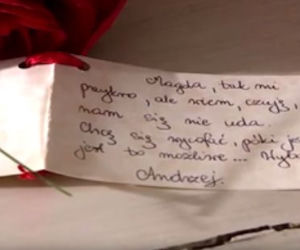 Magda, tak mi
przykro, ale wiem, czuję,
nam się nie uda.
Chcę się wycofać, póki je
jest to możliwe...
Andrzej.